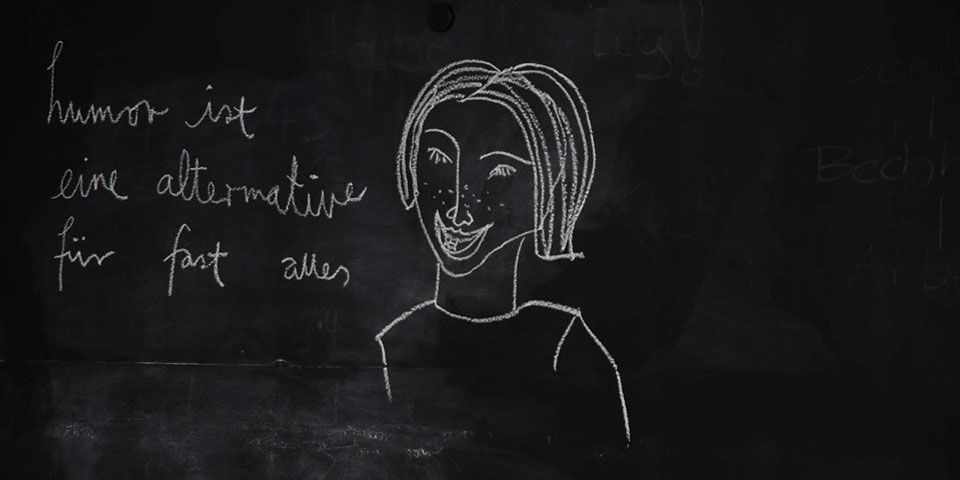 humor ist
eine alternative
für fast alles